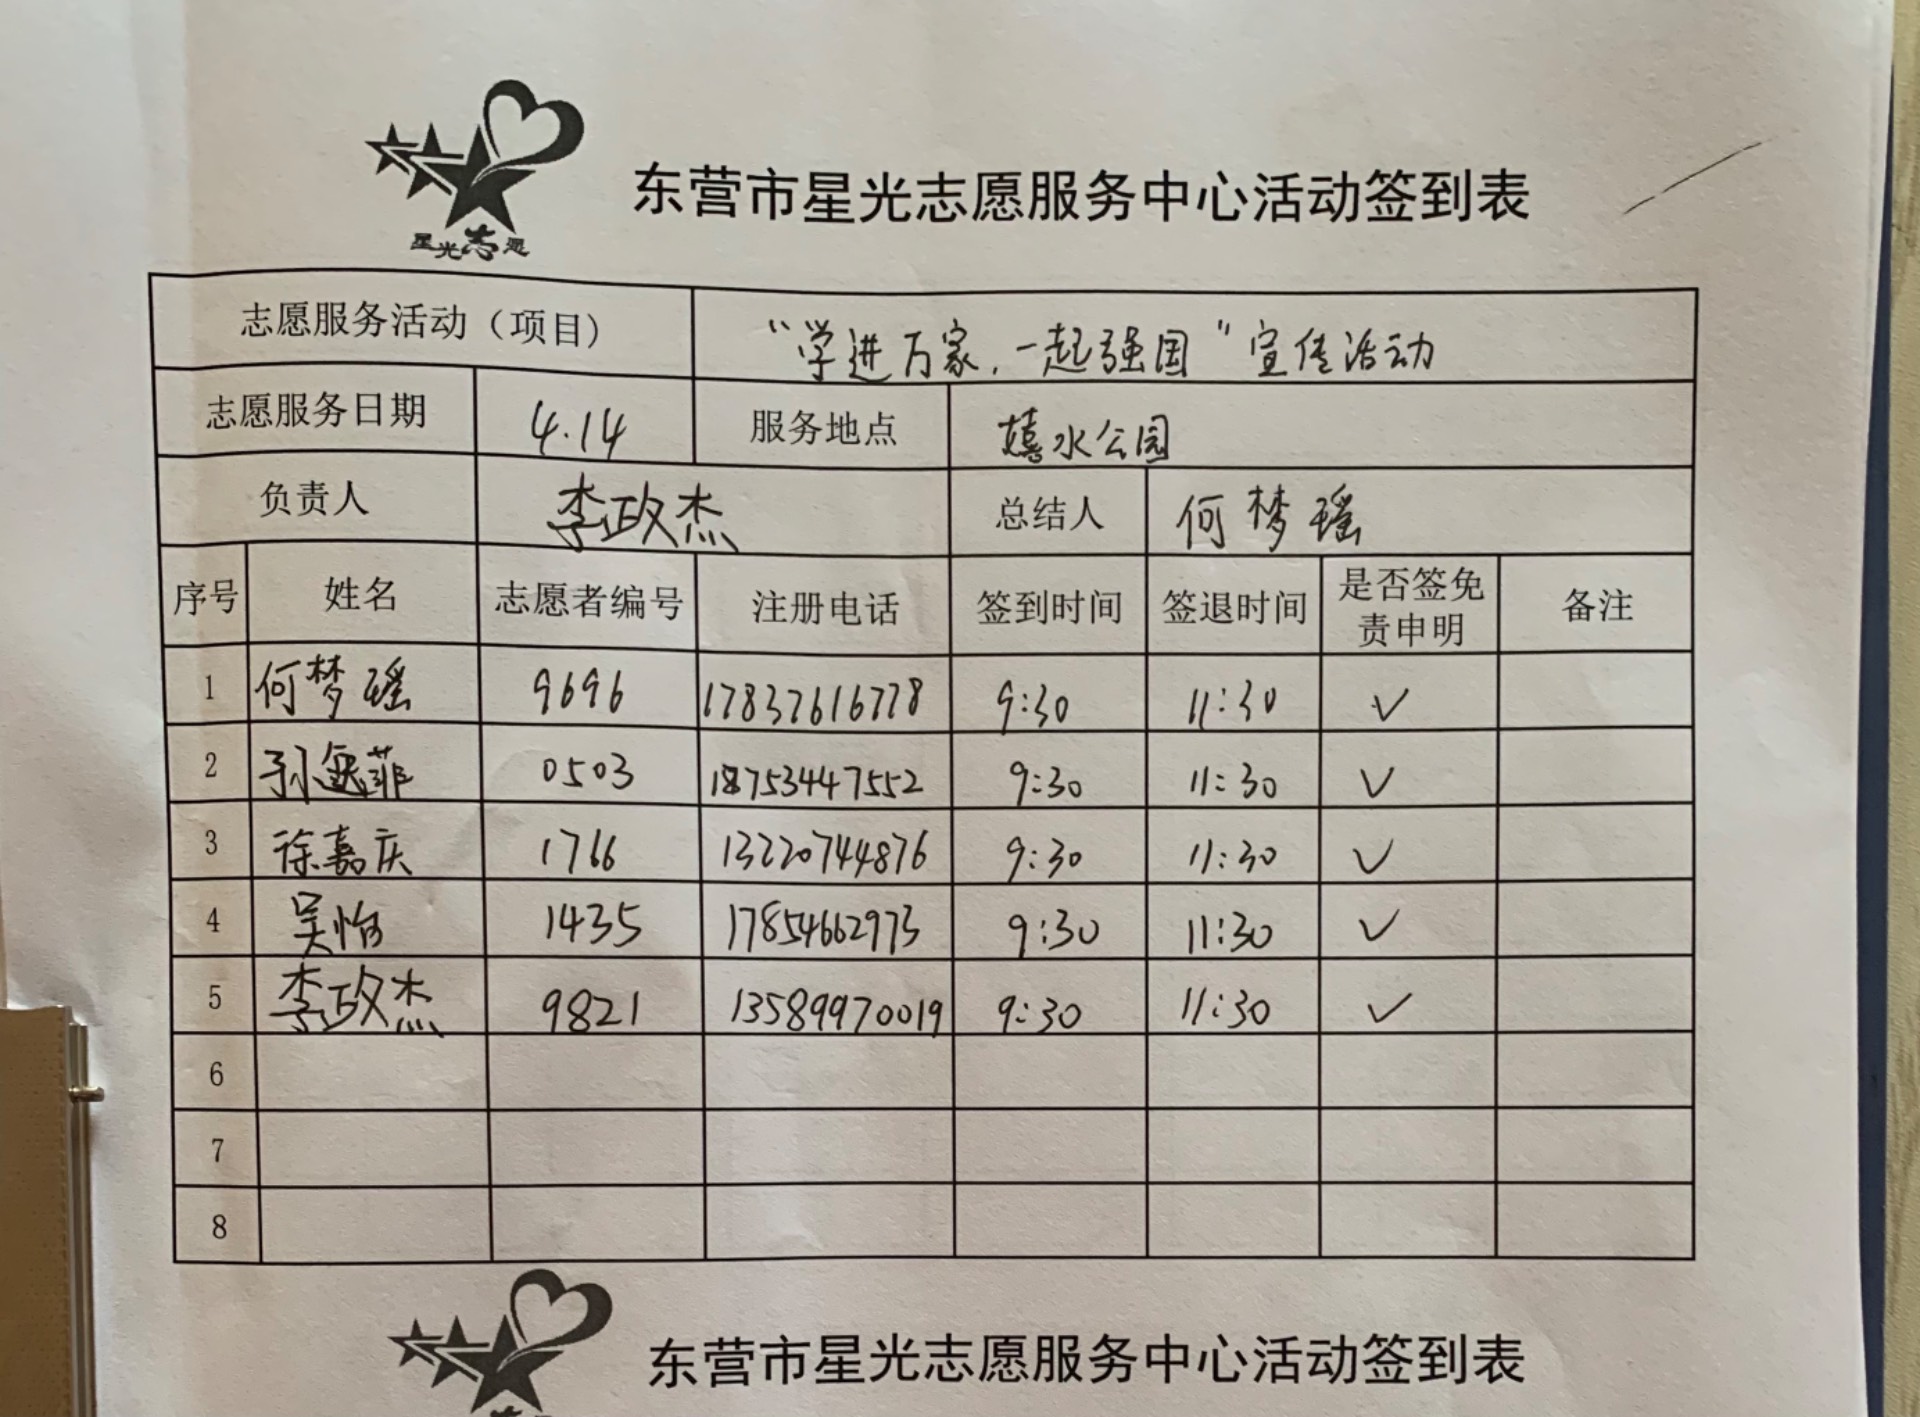 星光志愿
东营市星光志愿服务中心活动签到表
志愿服务活动（项目） “学进万家，一起强国”宣传活动
志愿服务日期 4.14 服务地点 嬉水公园
负责人 李政杰 总结人 何梦瑶
序号 姓名 志愿者编号 注册电话 签到时间 签退时间 是否签免责申明 备注
1 何梦瑶 9696 17837616778 9:30 11:30 ✓
2 孙 菲 0503 18753447552 9:30 11:30 ✓
3 徐嘉庆 1766 13220744876 9:30 11:30 ✓
4 吴怡 1435 17854662973 9:30 11:30 ✓
5 李政杰 9821 13589970019 9:30 11:30 ✓
6
7
8
东营市星光志愿服务中心活动签到表